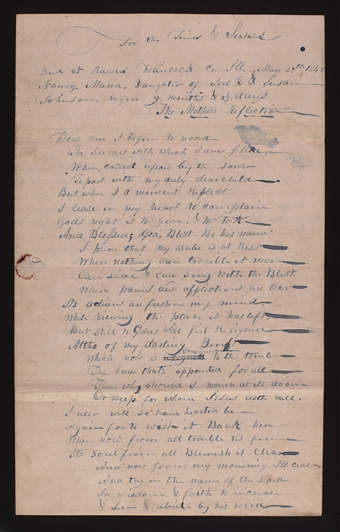 For the Times & Seasons
Died at Ramus Hancock Co Ills May 1843
Nancy Maria, Daughter of Joel H & Susan
Johnson, aged 9 months & 13 days
The Mothers Reflection
How can I begin to
The sorrow with which I am filled
When called upon by the Lord
To part with my only dear child
But when I a moment reflect
I cease in my heart to complain
Gods right is to give & to take
And Blessed yea, Blest Be his name
I know that my Babe is at Rest
Where nothing can trouble it more
Can & can Sing with the Blest
Where pains nor afflictions are oer
Its actions are fresh in my mind
While viewing the place it has left
But still to God will feel resigned
Altho of my darling Bereft
Which now is to the tomb
The house thats appointed for all
Then why should I mourn at its doom
Or weep for whom Jesus doth call.
I near will so hard hearted be
Again for to wish it Back here
When now from all trouble tis free
Its soul from all Blemish is Clear
And now from my mourning Ill cease
And try in the name of the Lord
In wisdom & faith to increase
& Live & abide by his word